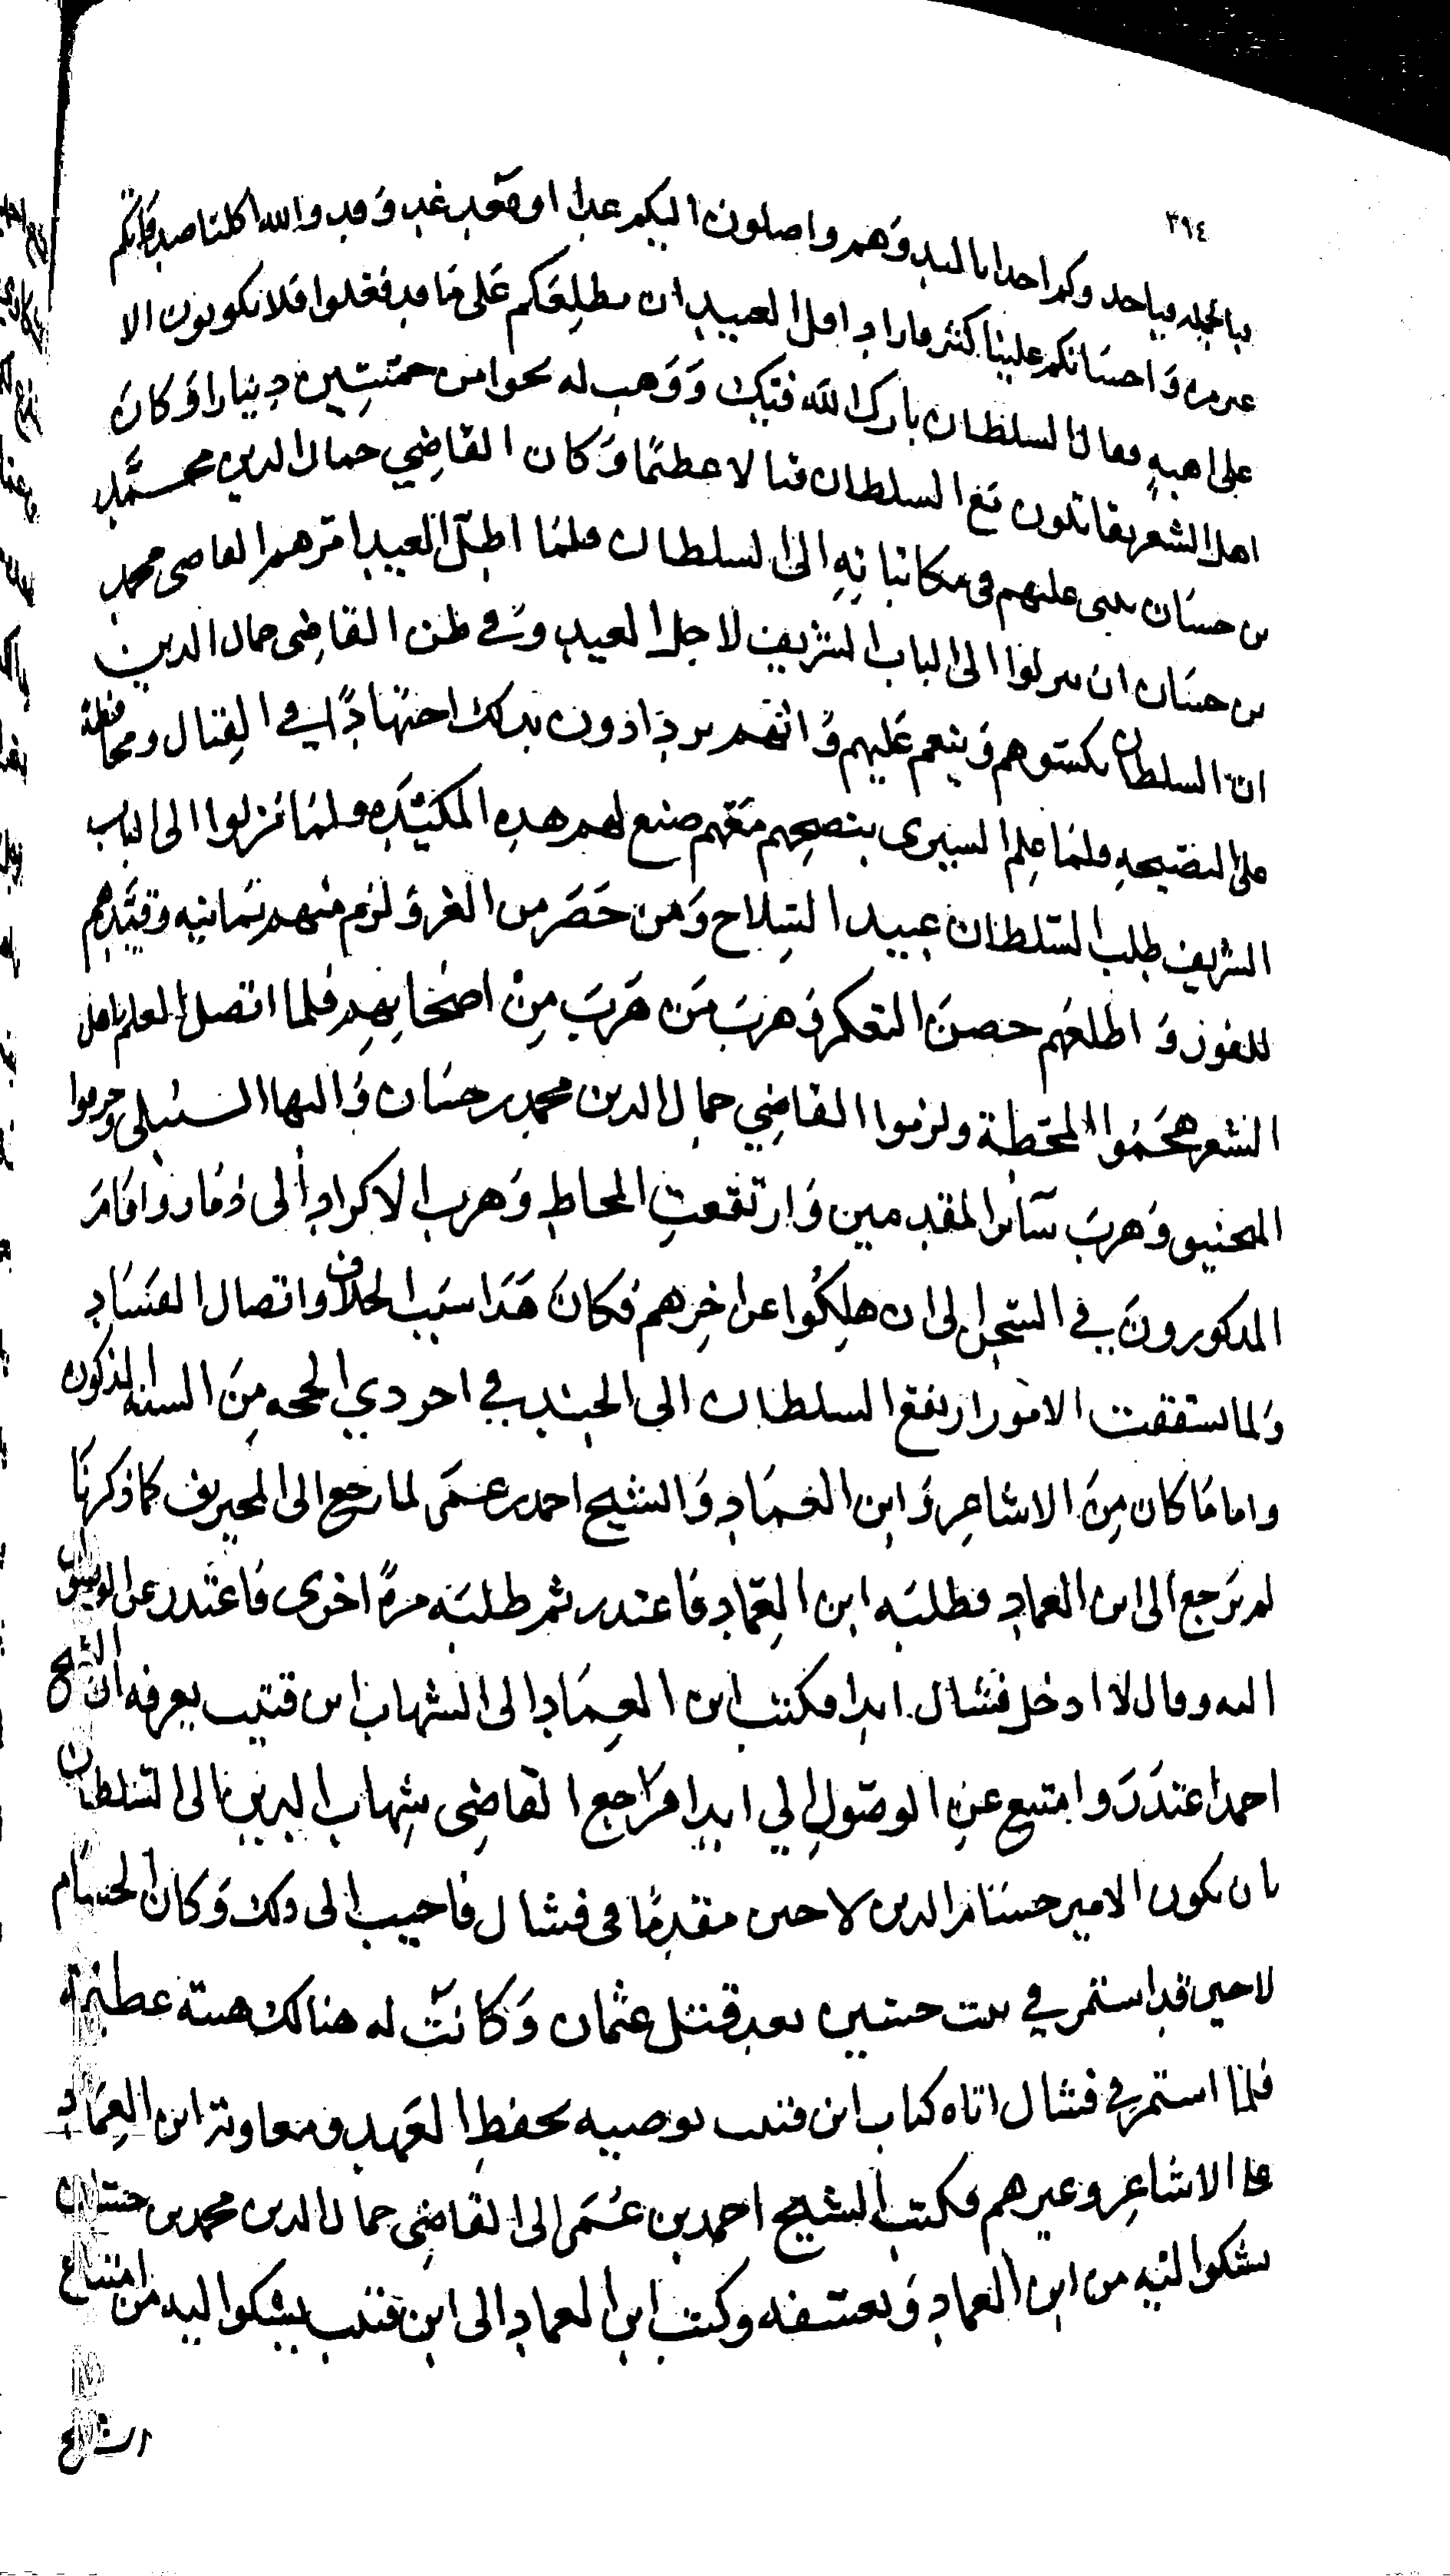 ٣٩٤
بالجبله وباحد وكم احدا بالىىد وهم واصلون اليكم غدا او بعد غد وقد والله اكلنا صدقاتكم
عىرمره واحسانكم علينا كثير فاراد اهل العبيد ان نطلعكم على ما قد فعلوا فلا تكونون الا
على اهبه فقال السلطان بارك الله فيك ووهب له نحوا من خمسين دينارا وكان
اهل الشعر يقاتلون مع السلطان قتالا عظيما وكان القاضي جمال الدين محمد
بن حسان يثني عليهم في مكاتباته الى السلطان فلما اطل العيد امرهم القاضي محمد
بن حسان ان ينزلوا الى الباب الشريف لاجل العيد وفي ظن القاضي جمال الدين
ان السلطان يكسوهم وينعم عليهم وانهم يزدادون بذلك اجتهادا في القتال ومحافظة
على النصيحه فلما علم السيرى بنصحهم معهم صنع لهم هذه المكيده فلما نزلوا الى الباب
الشريف طلب السلطان عبيد السلاح ومن حضر من الغز ولزم منهم ثمانيه وقيدهم
للفور واطلعهم حصن التعكر وهرب من هرب من اصحابهم فلما اتصل العلم باهل
الشعر هجموا المحطة ولزموا القاضي جمال الدين محمد بن حسان والبها السنبلي وحرموا
المنجنيق وهرب سائر المقدمين وارتفعت المحاط وهرب الاكراد الى ذمار واقام
المذكورون في السجن الى ان هلكوا عن اخرهم فكان هذا سبب الخلاف واتصال الفساد
ولما سقفت الامور ارتفع السلطان الى الجند في اخر ذي الحجه من السنه المذكوره
واما ما كان من الاشاعر وابن العماد والشيخ احمد بن عمر لما رجع الى المحيريف كما ذكرنا
لم يرجع الى ابن العماد فطلبه ابن العماد فاعتذر ثم طلبه مرة اخرى فاعتذر عن الوصول
اليه وقال لا ادخل فشال ابدا فكتب ابن العماد الى الشهاب ابن قتيب يعرفه ان الشيخ
احمد اعتذر وامتنع عن الوصول الي ابدا فراجع القاضي شهاب الدين الى السلطان
بان يكون الامير حسام الدين لاجين مقدما في فشال فاجيب الى ذلك وكان الحسام
لاجين قد استمر في بيت حسين بعد قتل عثمان وكانت له هنالك هيبة عظيمة
فلما استمر في فشال اتاه كتاب ابن قتيب يوصيه بحفظ العهد ومعاونة ابن العماد
على الاشاعر وغيرهم فكتب الشيخ احمد بن عمر الى القاضي جمال الدين محمد بن حسان
يشكوا اليه من ابن العماد وتعسفه وكتب ابن العماد الى ابن قتيب يشكوا اليه من امتناع
الشيخ